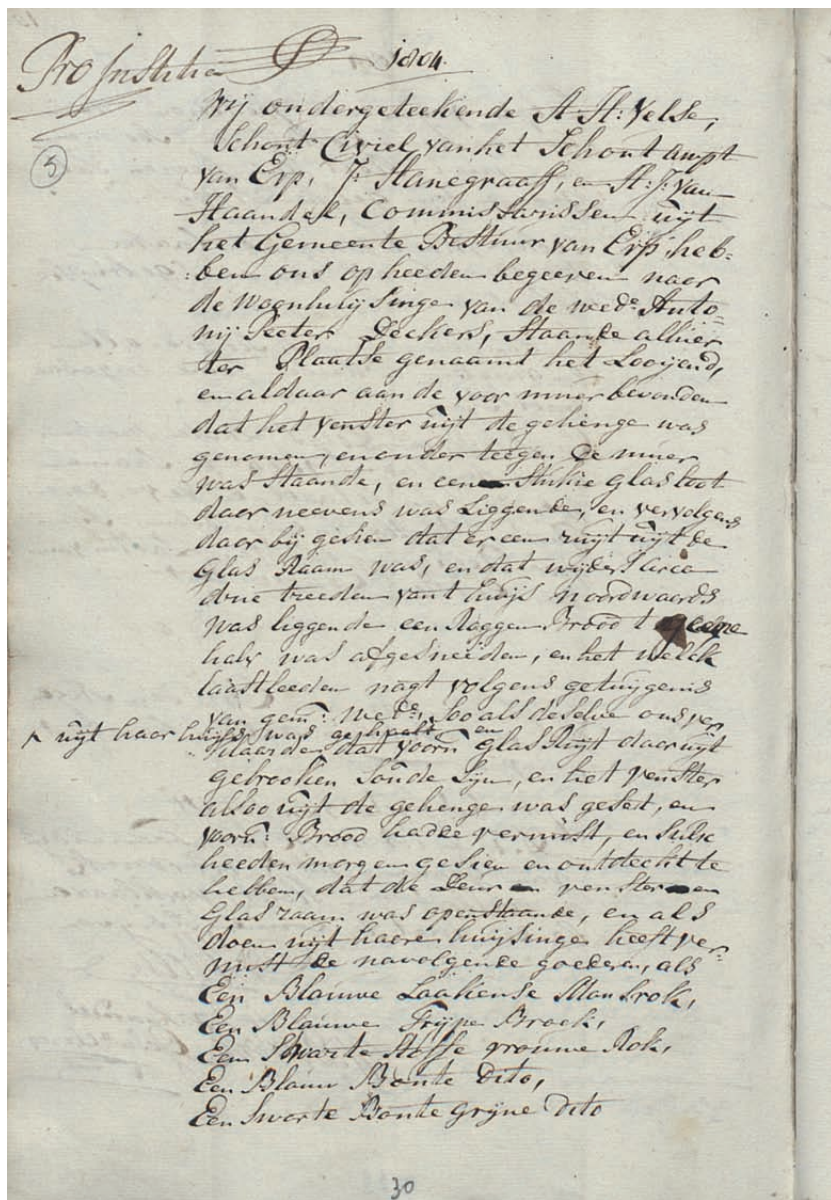 Pro Justitia 1804.
5
Wij ondergeteekende A: H: Velse,
Schout Civiel van het Schout ampt
van Erp, J: Hanegraaff, en H: J: van
Haandel, Commissarissen uijt
het Gemeente Bestuur van Erp, heb=
:ben ons op heeden begeeven naar
de woonhuijsinge van de wede: Anto=
nij Peeter Deckers, staande alhier
ter Plaatse genaamt het Looijend,
en aldaar aan de voor muer bevonden
dat het venster uijt de gehenge was
genomen, en onder teegen de muer
was staande, en een stukie glas loot
daar neevens was liggende, en vervolgens
daar bij gesien dat er een ruijt uijt de
Glas Raam was, en dat wijders circa
drie treeden van t huijs noordwaards
was liggende een Roggen Brood t geene
halv was afgesneeden, en het welck
laastleeden nagt volgens getuijgenis
van gem: wede:, so als deselve ons ver
^ uijt haar huijs was gehaalt en
klaarde dat voorn glas Ruijt daar uijt
gebrooken soude sijn, en het venster
alsoo uijt de gehenge was geset, en
voorn: Brood hadde vermist, en sulx
heeden morgen gesien en ontdeckt te
hebben, dat de Deur en venster en
Glas raam was openstaande, en als
doen uijt haere huijsinge heeft ver=
mist de navolgende goederen, als
Een Blauwe Laakense Mans rok,
Een Blauwe Trijpe Broek,
Een Swarte Stoffe vrouwe Rok,
Een Blauw Bonte Dito,
Een Swarte Bonte grijne Dito
30